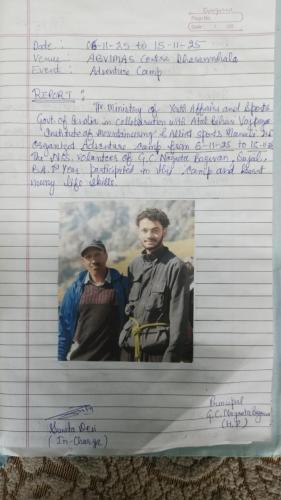 Date : 06-11-25 to 15-11-25
Venue ABVIMAS Centre Dharamshala
Event : Adventure Camp
REPORT :
The Ministry of Youth Affairs and Sports
Govt of India in collaboration with Atal Bihari Vajpayee
Institute of Mountaineering & Allied Sports Manali
organized Adventure camp from 6-11-25 to 15-11-25
The NSS volunteers of G.C. Nagrota Bagwan,
B.A. Year participated in this camp and learnt
many life skills.
Sunita Devi
(In-charge)
Principal
G.C. Nagrota Bagwan
(H.P)